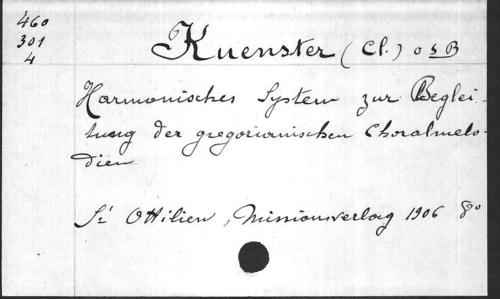 460
301
4
Kuenster (Cl.) O S B
Harmonisches System zur Beglei-
tung der gregorianischen Choralmelo-
dien
St Ottilien, Missionsverlag 1906 8°